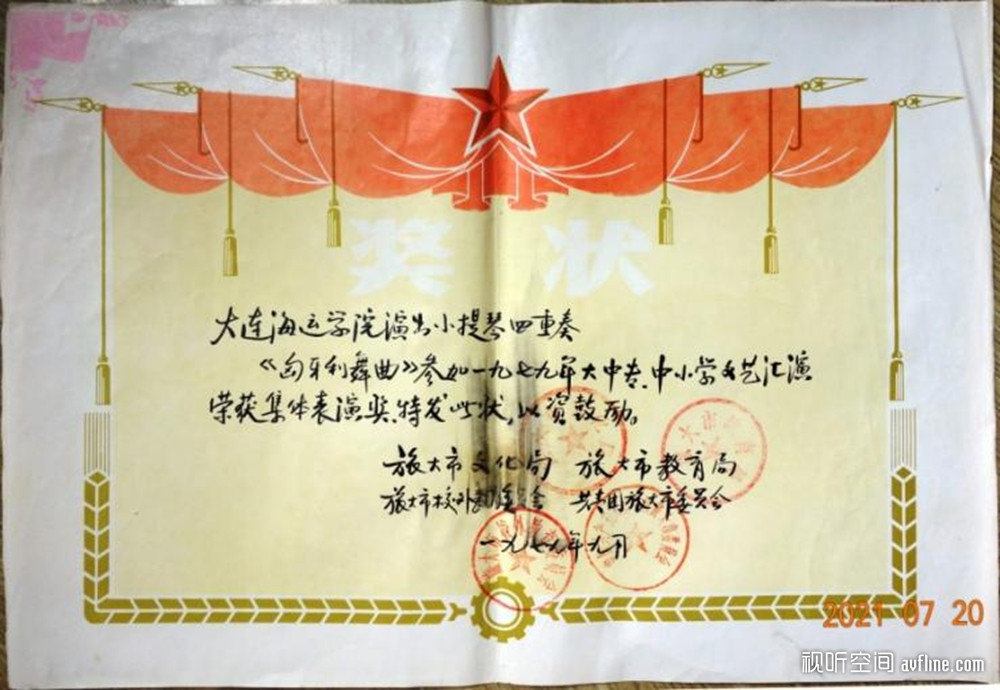 奖状
大连海运学院演出小提琴四重奏
《匈牙利舞曲》参加一九七九年大中专、中小学文艺汇演
荣获集体表演奖,特发此状,以资鼓励。
旅大市文化局 旅大市教育局
旅大市校外教育委员会 共青团旅大市委员会
一九七九年九月
2021 07 20
视听空间 avfline.com